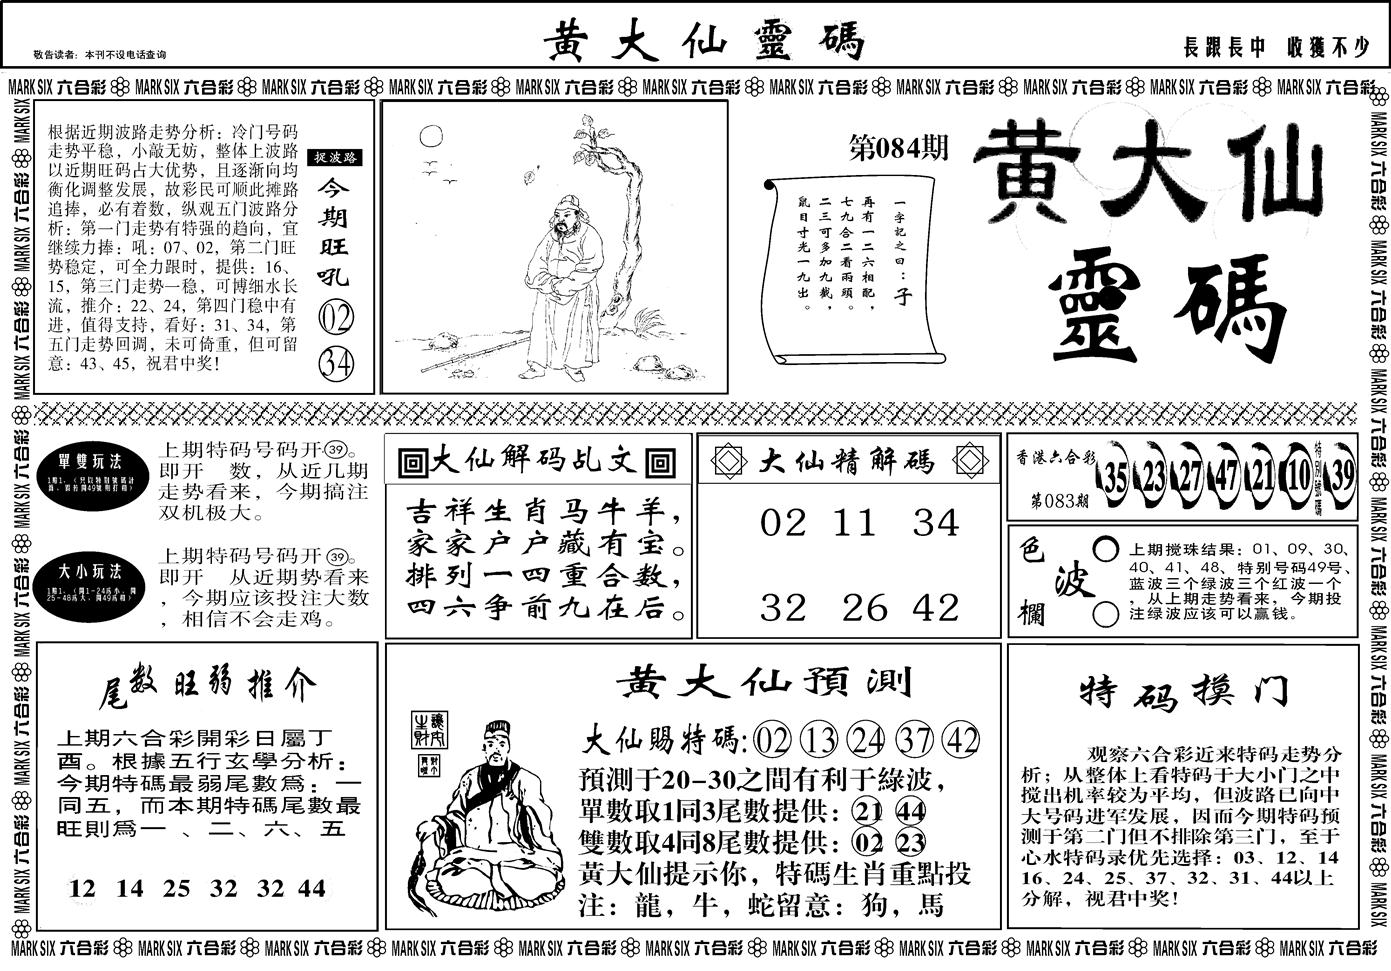 敬告读者：本刊不设电话查询
黄大仙靈碼
長跟長中 收獲不少
MARK SIX 六合彩 MARK SIX 六合彩 MARK SIX 六合彩 MARK SIX 六合彩 MARK SIX 六合彩 MARK SIX 六合彩 MARK SIX 六合彩 MARK SIX 六合彩 MARK SIX 六合彩 MARK SIX 六合彩 MARK SIX 六合彩
根据近期波路走势分析：冷门号码
走势平稳，小敲无妨，整体上波路
以近期旺码占大优势，且逐渐向均
衡化调整发展，故彩民可顺此摊路
追捧，必有着数，纵观五门波路分
析：第一门走势有特强的趋向，宜
继续力捧：吼：07、02，第二门旺
势稳定，可全力跟时，提供：16、
15，第三门走势一稳，可博细水长
流，推介：22、24，第四门稳中有
进，值得支持，看好：31、34，第
五门走势回调，未可倚重，但可留
意：43、45，祝君中奖！
捉波路
今期旺吼
02
34
第084期
一字記之曰：子
再有一二六相配，
七九合二看兩頭。
二三可多加九截，
鼠目寸光一九出。
黄大仙
靈碼
單雙玩法
上期特码号码开㊴。
即开 数，从近几期
走势看来，今期搞注
双机极大。
大小玩法
上期特码号码开㊴。
即开 从近期势看来
，今期应该投注大数
，相信不会走鸡。
大仙解码乩文
吉祥生肖马牛羊，
家家户户藏有宝。
排列一四重合数，
四六争前九在后。
大仙精解碼
02 11 34
32 26 42
香港六合彩
第083期
35 23 27 47 21 10 特别號碼 39
色波欄
上期搅珠结果：01、09、30、
40、41、48、特别号码49号、
蓝波三个绿波三个红波一个
，从上期走势看来，今期投
注绿波应该可以赢钱。
尾数旺弱推介
上期六合彩開彩日屬丁
酉。根據五行玄學分析：
今期特碼最弱尾數爲：一
同五，而本期特碼尾數最
旺則爲一 、二、六、五
12 14 25 32 32 44
黄大仙預測
大仙賜特碼：02 13 24 37 42
預測于20-30之間有利于綠波，
單數取1同3尾數提供：21 44
雙數取4同8尾數提供：02 23
黄大仙提示你，特碼生肖重點投
注：龍，牛，蛇留意：狗，馬
特码摸门
观察六合彩近来特码走势分
析；从整体上看特码于大小门之中
搅出机率较为平均，但波路已向中
大号码进军发展，因而今期特码预
测于第二门但不排除第三门，至于
心水特码录优先选择：03、12、14
16、24、25、37、32、31、44以上
分解，祝君中奖！
MARK SIX 六合彩 MARK SIX 六合彩 MARK SIX 六合彩 MARK SIX 六合彩 MARK SIX 六合彩 MARK SIX 六合彩 MARK SIX 六合彩 MARK SIX 六合彩 MARK SIX 六合彩 MARK SIX 六合彩 MARK SIX 六合彩